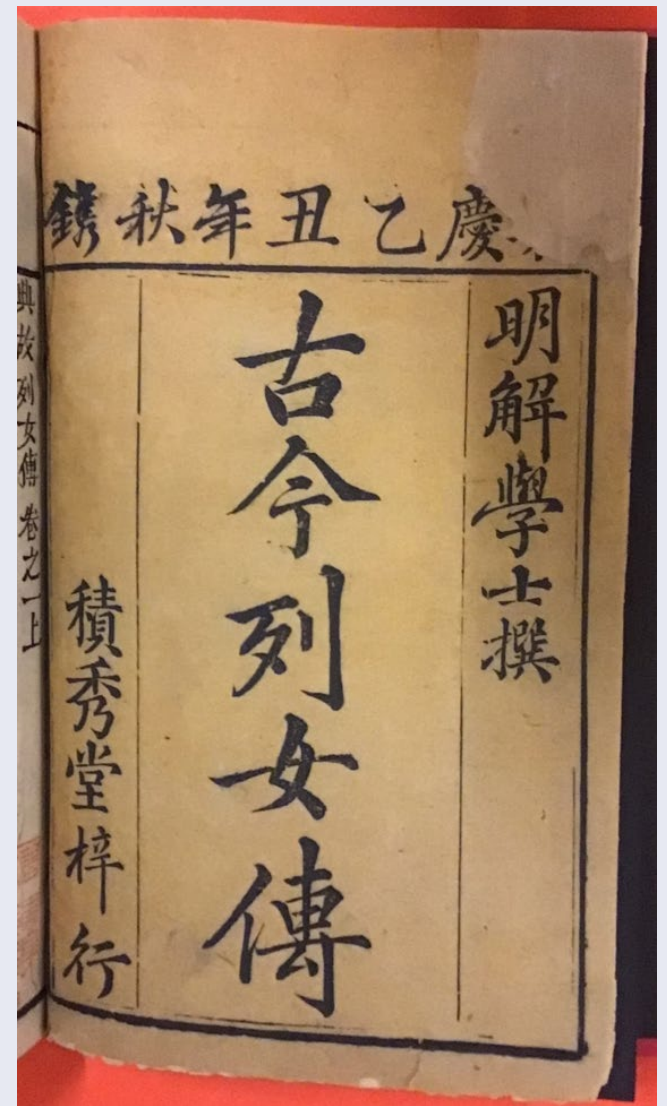 慶乙丑年秋鐫
明解學士撰
古今列女傳
積秀堂梓行
典故列女傳 卷之一上